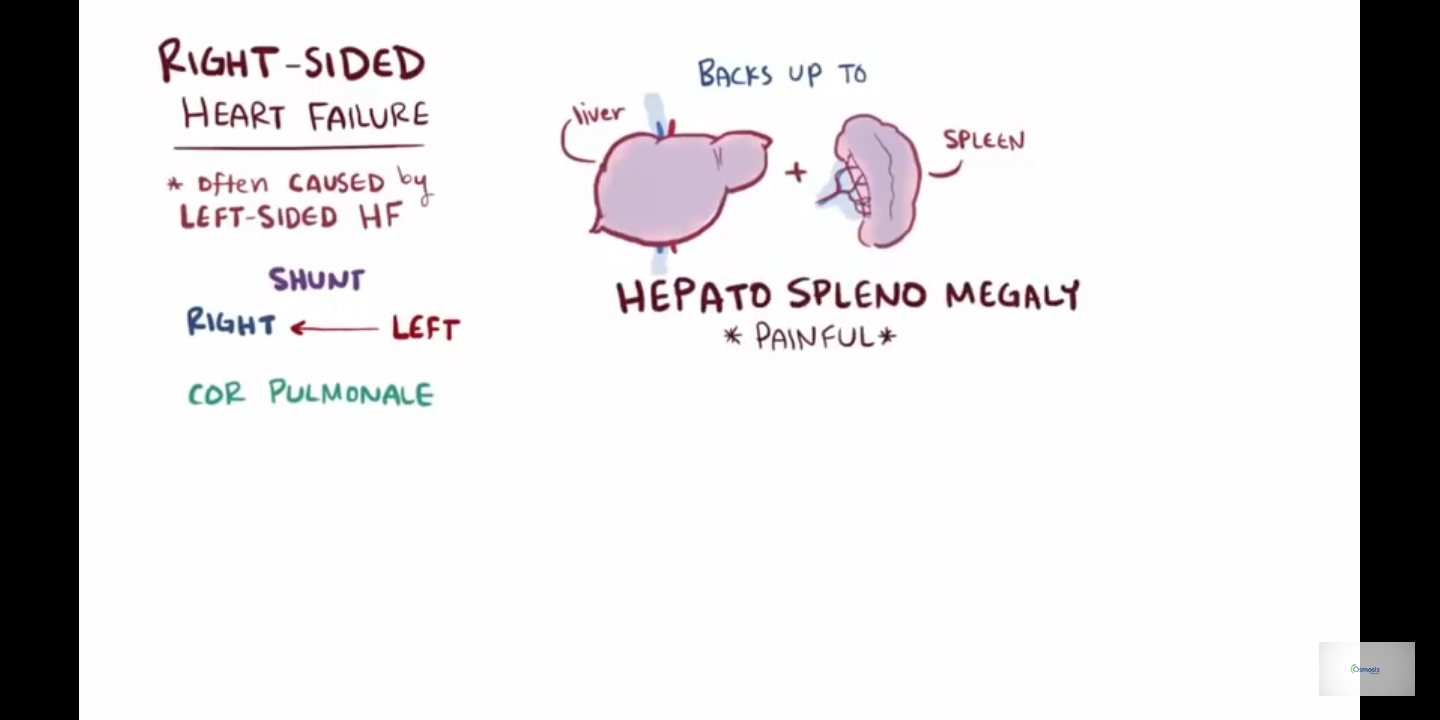 RIGHT-SIDED
HEART FAILURE
* Often CAUSED by
LEFT-SIDED HF
SHUNT
RIGHT ← LEFT
COR PULMONALE
BACKS UP TO
liver
+
SPLEEN
HEPATO SPLENO MEGALY
* PAINFUL *
Osmosis